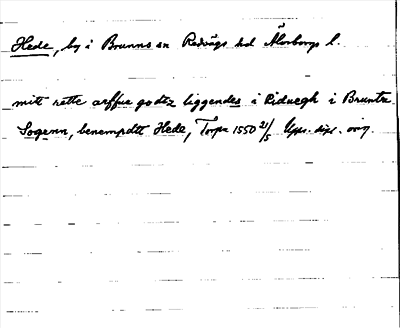 Hede, by i Brunns sn Redvägs hd Älvsborgs l.
mitt rette arffue godtz liggendes i Riduegh i Bruntz
Sogenn, benempdtt Hede, Torpa 1550 21/5 Upps. dipl. orig.